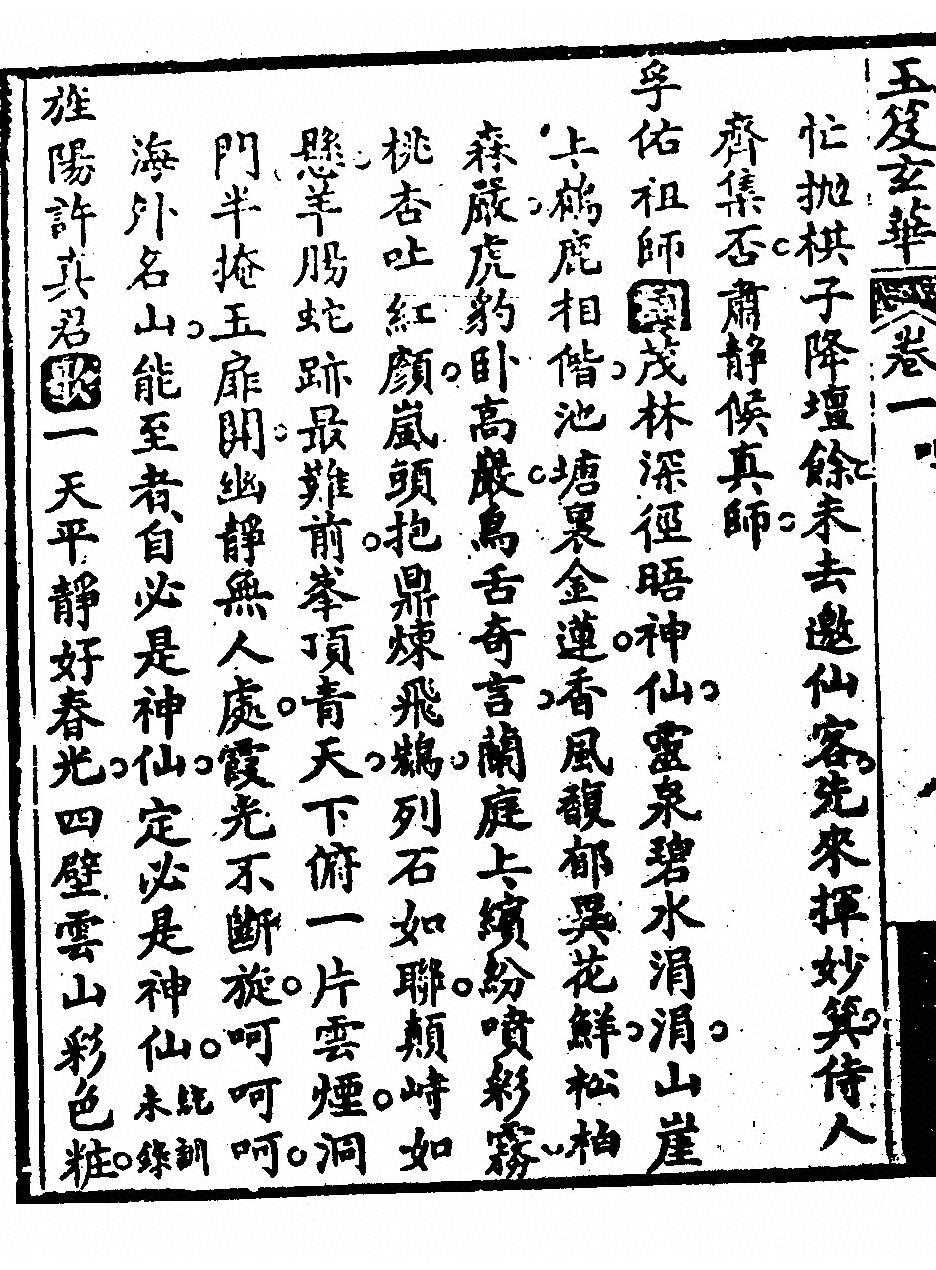 玉笈玄華 卷一
忙拋棋子降壇餘未去邀仙客先來揮妙箕侍人
齊集否肅靜候真師
孚佑祖師 茂林深徑晤神仙靈泉碧水涓涓山崖
上鶴鹿相偕池塘裏金蓮香風馥郁異花鮮松柏
森嚴虎豹卧高巖鳥舌奇言蘭庭上繽紛噴彩霧
桃杏吐紅顏嵐頭抱鼎煉飛鵝列石如聯顛峙如
懸羊腸蛇跡最難前峯項青天下俯一片雲煙洞
門半掩玉扉開幽靜無人處霞光不斷旋呵呵呵
海外名山能至者自必是神仙定必是神仙統訓未錄
旌陽許真君歌一天平靜好春光四壁雲山彩色粧